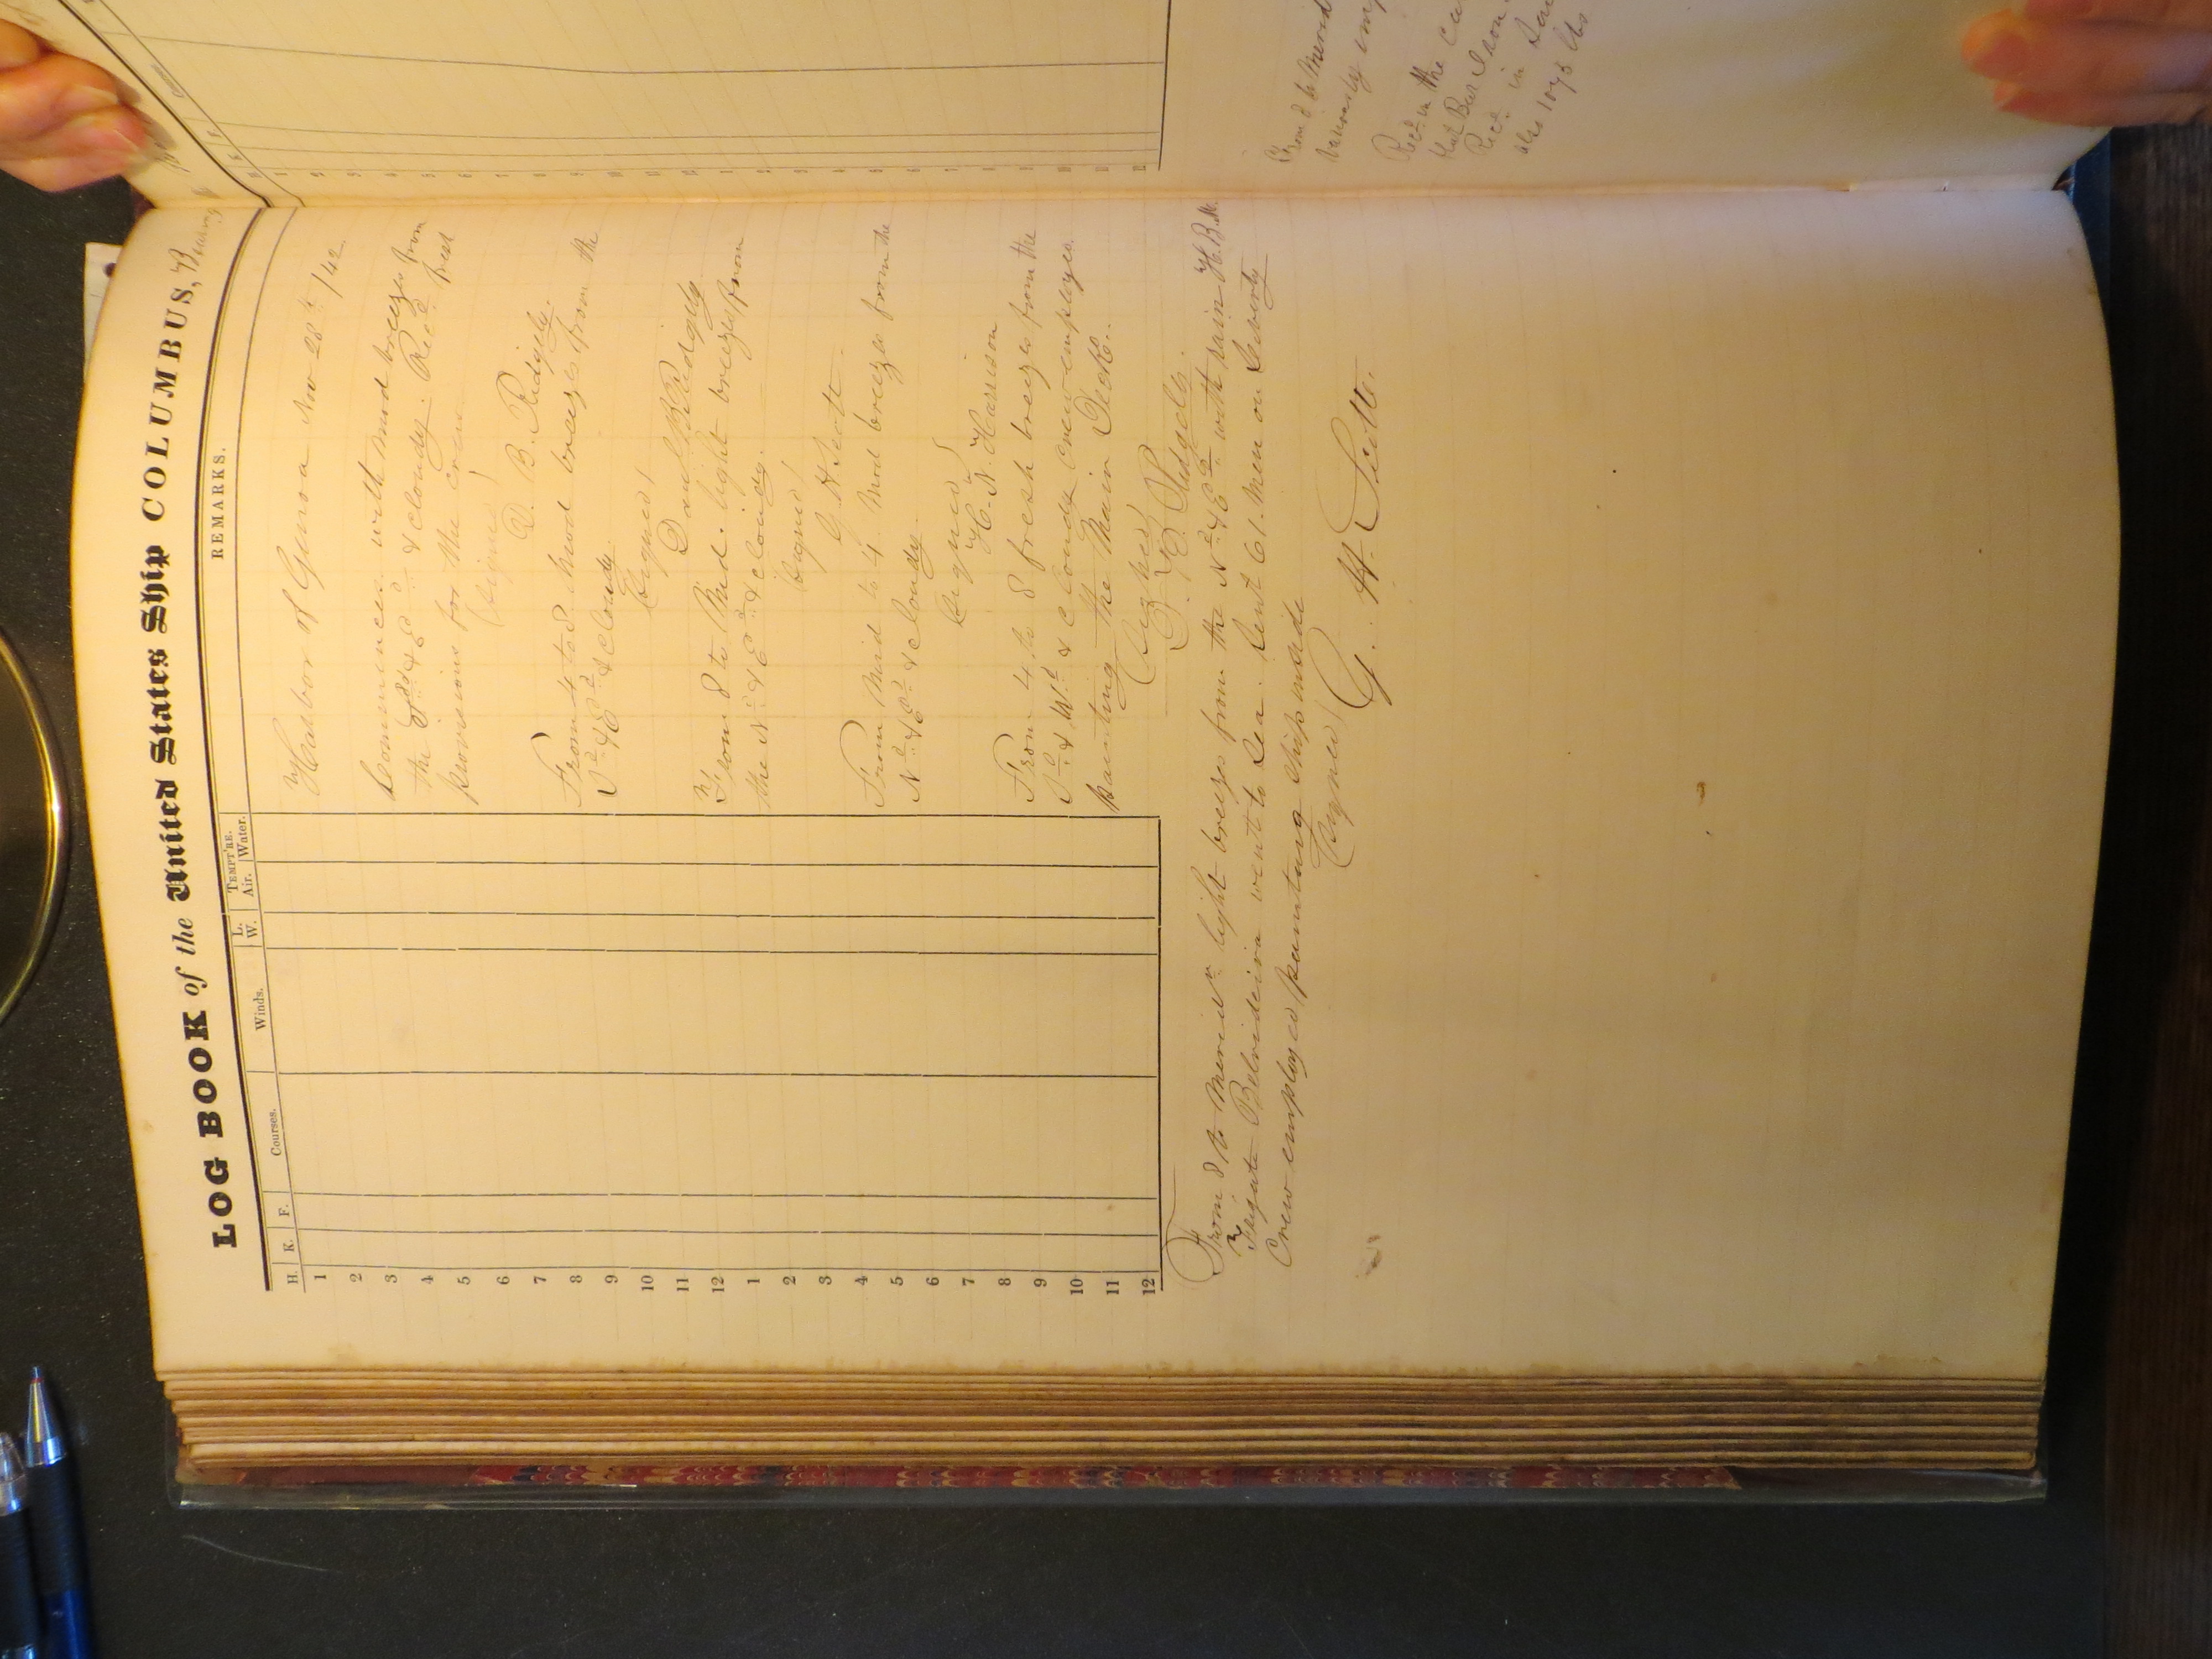 LOG BOOK of the United States Ship COLUMBUS,
H. K. F. Courses. Winds. L. W. TEMPT'RE. Air. Water. REMARKS.
1
2
3
4
5
6
7
8
9
10
11
12
1
2
3
4
5
6
7
8
9
10
11
12
Harbor of Genoa Nov 28th /42
Commences with mod breezes from
the Sd & Ed & cloudy. Recd fresh
provisions for the crew
(Signed)
D. B. Ridgely.
From 4 to 8 mod breezes from the
Nd & Ed & cloudy.
(Signed)
Danl. B. Ridgely
From 8 to Mid. light breezes from
the Nd & Ed & cloudy.
(Signed)
G. H. Scott.
From Mid to 4. Mod breezes from the
Nd & Ed & cloudy.
(Signed)
H. N. Harrison
From 4 to 8 fresh breezes from the
& Wd & cloudy Crew employed
painting the Main Deck.
(Signed)
Ridgely.
From 8 to Meridn light breezes from the Nd & Ed with rain H.B.M.
Frigate Belvideira went to Sea. Sent 61. Men on liberty
Crew employed painting ship inside
(Signed)
G. H. Scott.
From 8 to Merid
variously
Recd in the
Flat Bar Iron
Recd in
also lbs